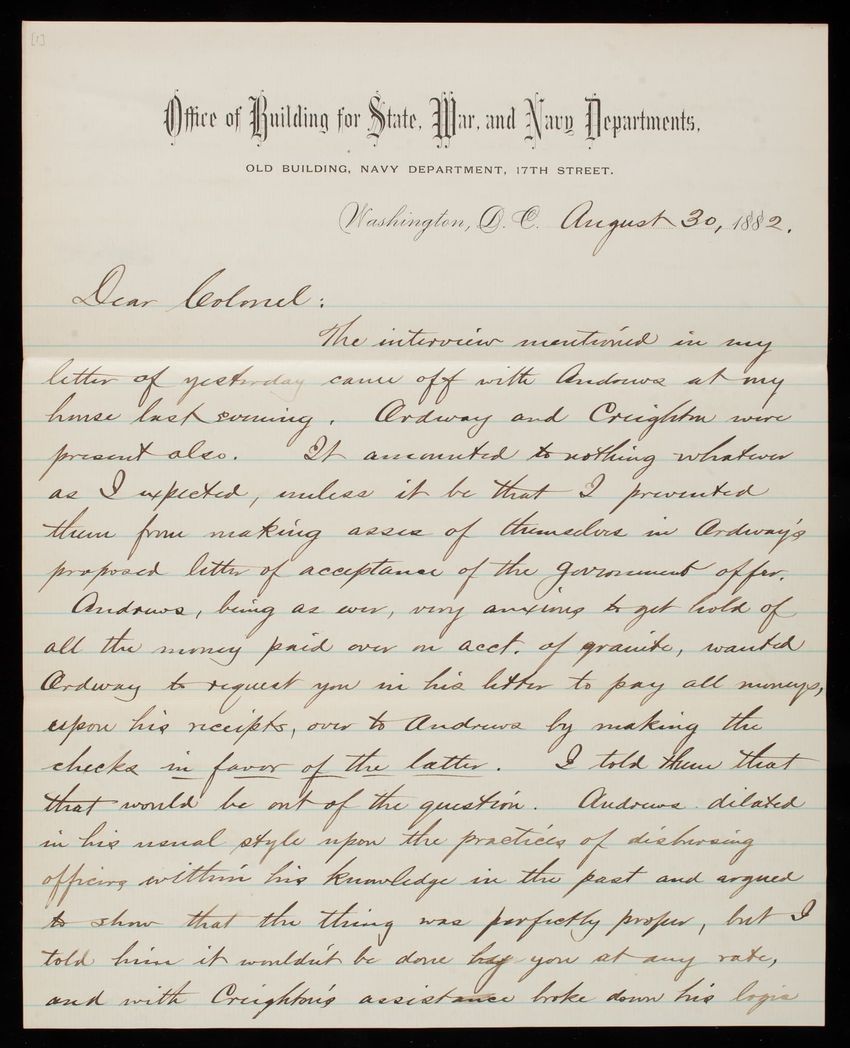 [1]
Office of Building for State, War, and Navy Departments,
OLD BUILDING, NAVY DEPARTMENT, 17TH STREET.
Washington, D. C. August 30, 1882.
Dear Colonel:
The interview mentioned in my
letter of yesterday came off with Andrews at my
house last evening. Ordway and Creighton were
present also. It amounted to nothing whatever
as I expected, unless it be that I prevented
them from making asses of themselves in Ordway's
proposed letter of acceptance of the Government offer.
Andrews, being as ever, very anxious to get hold of
all the money paid over on acct. of granite, wanted
Ordway to request you in his letter to pay all moneys,
upon his receipts, over to Andrews by making the
checks in favor of the latter. I told them that
that would be out of the question. Andrews dilated
in his usual style upon the practices of disbursing
officers within his knowledge in the past and argued
to show that the thing was perfectly proper, but I
told him it wouldn't be done by you at any rate,
and with Creighton's assistance broke down his logic